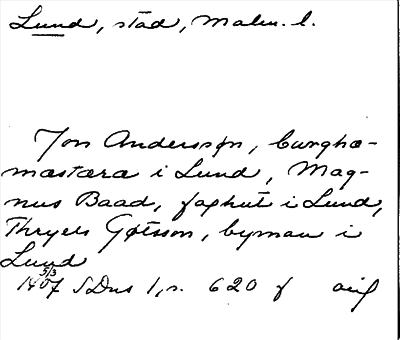 Lund, stad, Malm. l.
Jon Anderssøn, burgha-
mæstara i Lund, Mag-
nus Baad, foghut i Lund,
Thryels Gøtsson, byman i
Lund
5/3
1407 SDns 1, s. 620 f